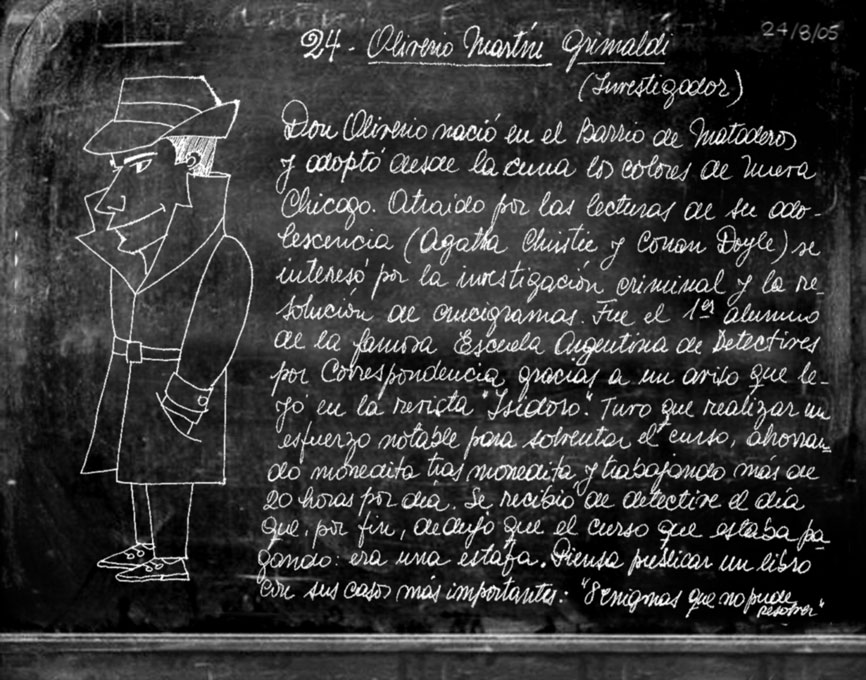 24/8/05
24 - Oliverio Martín Grimaldi
(Investigador)
Don Oliverio nació en el Barrio de Mataderos
y adoptó desde la cuna los colores de Nueva
Chicago. Atraído por las lecturas de su ado-
lescencia (Agatha Christie y Conan Doyle) se
interesó por la investigación criminal y la re-
solución de crucigramas. Fue el 1er alumno
de la famosa Escuela Argentina de Detectives
por Correspondencia, gracias a un aviso que le-
yó en la revista "Isidoro". Tuvo que realizar un
esfuerzo notable para solventar el curso, ahorran-
do monedita tras monedita y trabajando más de
20 horas por día. Se recibió de detective el día
que, por fin, dedujo que el curso que estaba pa-
gando: era una estafa. Piensa publicar un libro
con sus casos más importantes: "8 enigmas que no pude
resolver"